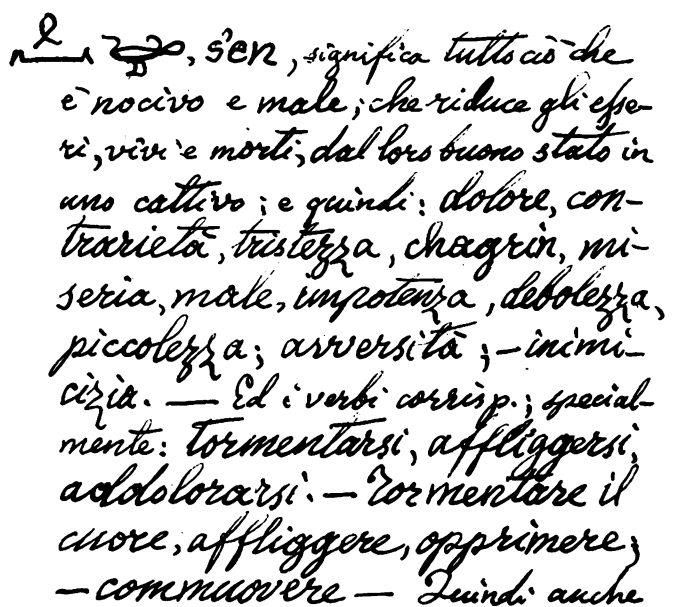 , s'en, significa tutto ciò che
è nocivo e male; che riduce gli esse-
ri, vivi e morti, dal loro buono stato in
uno cattivo; e quindi: dolore, con-
trarietà, tristezza, chagrin, mi-
seria, male, impotenza, debolezza,
piccolezza; avversità; — inimi-
cizia. — Ed i verbi corrisp.; special-
mente: tormentarsi, affliggersi,
addolorarsi. — Tormentare il
cuore, affliggere, opprimere;
— commuovere — Quindi anche